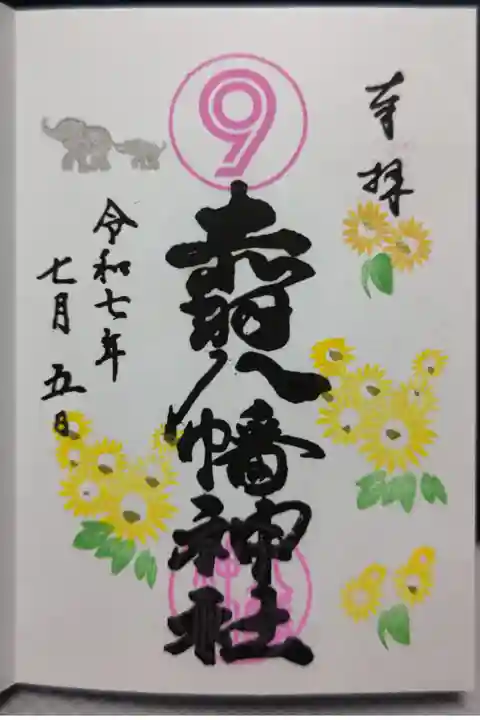 奉拝
⑨
赤羽八幡神社
令和七年
七月五日